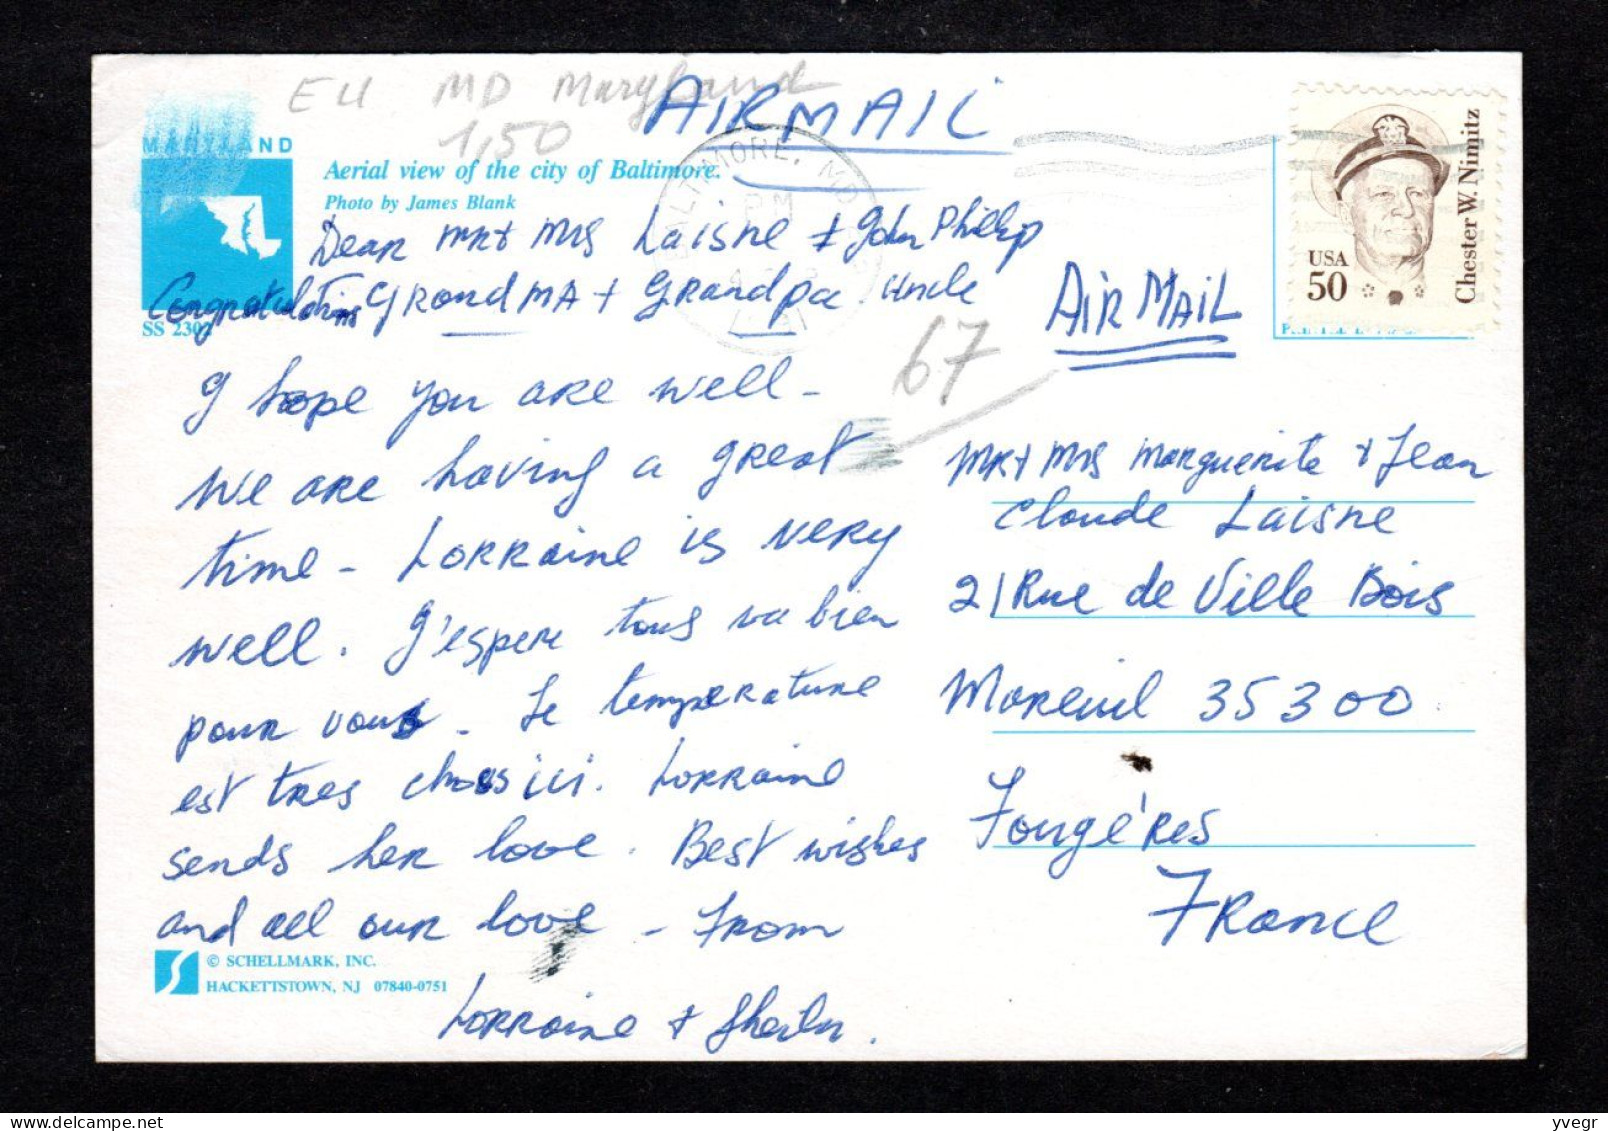 EU MD Maryland
1,50
AIRMAIL
MARYLAND
Aerial view of the city of Baltimore.
Photo by James Blank
SS 2302
BALTIMORE, MD
USA
50
Chester W. Nimitz
Dear MR+ Mrs Laisne + John Philip
Congratulations Grandma + Grandpa Uncle
AIR MAIL
67
I hope you are well -
We are having a great
time - Lorraine is very
well. J'espere tous va bien
pour vous - Le temperature
est tres chaus ici. Lorraine
sends her love. Best wishes
and all our love - From
Lorraine + Sheila.
MR+ Mrs Marguerite + Jean
Claude Laisne
21 Rue de Ville Bois
Moreuil 35300
Fougères
France
© SCHELLMARK, INC.
HACKETTSTOWN, NJ 07840-0751
yvegr